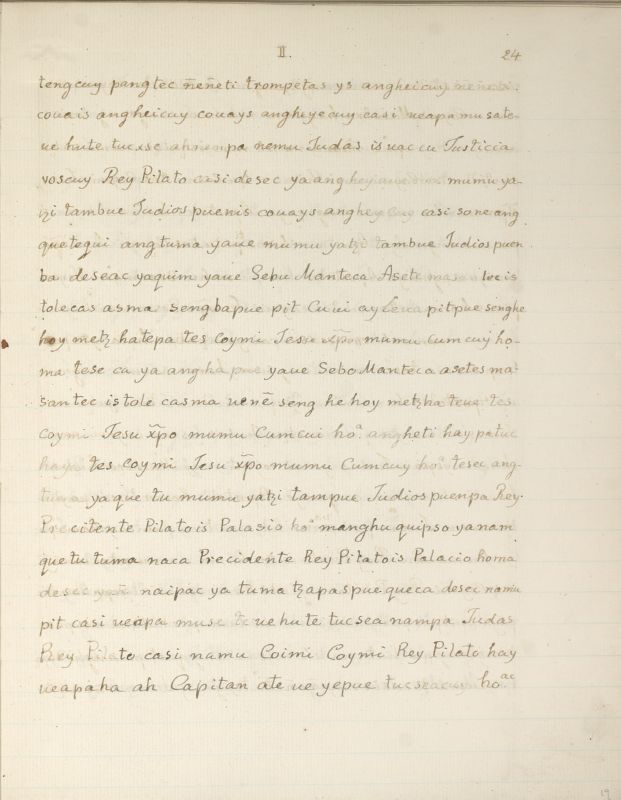 II. 24
tengcuy pangtec ñeñeti trompetas ys angheicuy
couais angheicuy couays angheyecuy casi ueapa mu sate-
ue hute tucxse ahnenpa nemu Judas is uac cu Justicia
voscuy Rey Pilato casi desec ya ang mumu ya-
tzi tambue Judios puenis couays anghey cuy casi sone ang
quetequi angtuma yaue mumu yatzi tambue Judios puen
ba deseac yaquim yaue Sebu Manteca Asete mase tec is
tolecas asma sengbapue pit Cuui ay pitpue senghe
hoy metz hatepa tes coymi Jesu xp̃o mumu cumcuy ho-
ma tese ca ya ang ha pue yaue Sebo Manteca asetes ma-
san tec is tole casma uenẽ seng he hoy metz ha teue tes
coymi Jesu xp̃o mumu Cumcui hoª. angheti hay patuc
haya tes coymi Jesu xp̃o mumu Cumcuy hoª tesec ang-
tuma ya que tu mumu yatzi tampue Judios puenpa Rey.
Precitente Pilato is Palasio hoª manghu quipso yanam
que tu tuma naca Precidente Rey Pilato is Palacio homa
desec naipac ya tuma tzapas pue queca desec namu
pit casi ueapa musc te ue hu te tucsea nampa Judas
Rey Pilato casi namu Coimi Coymi Rey Pilato hay
ueapaha ah Capitan ate ue yepue tucseacuy hoªᶜ
19